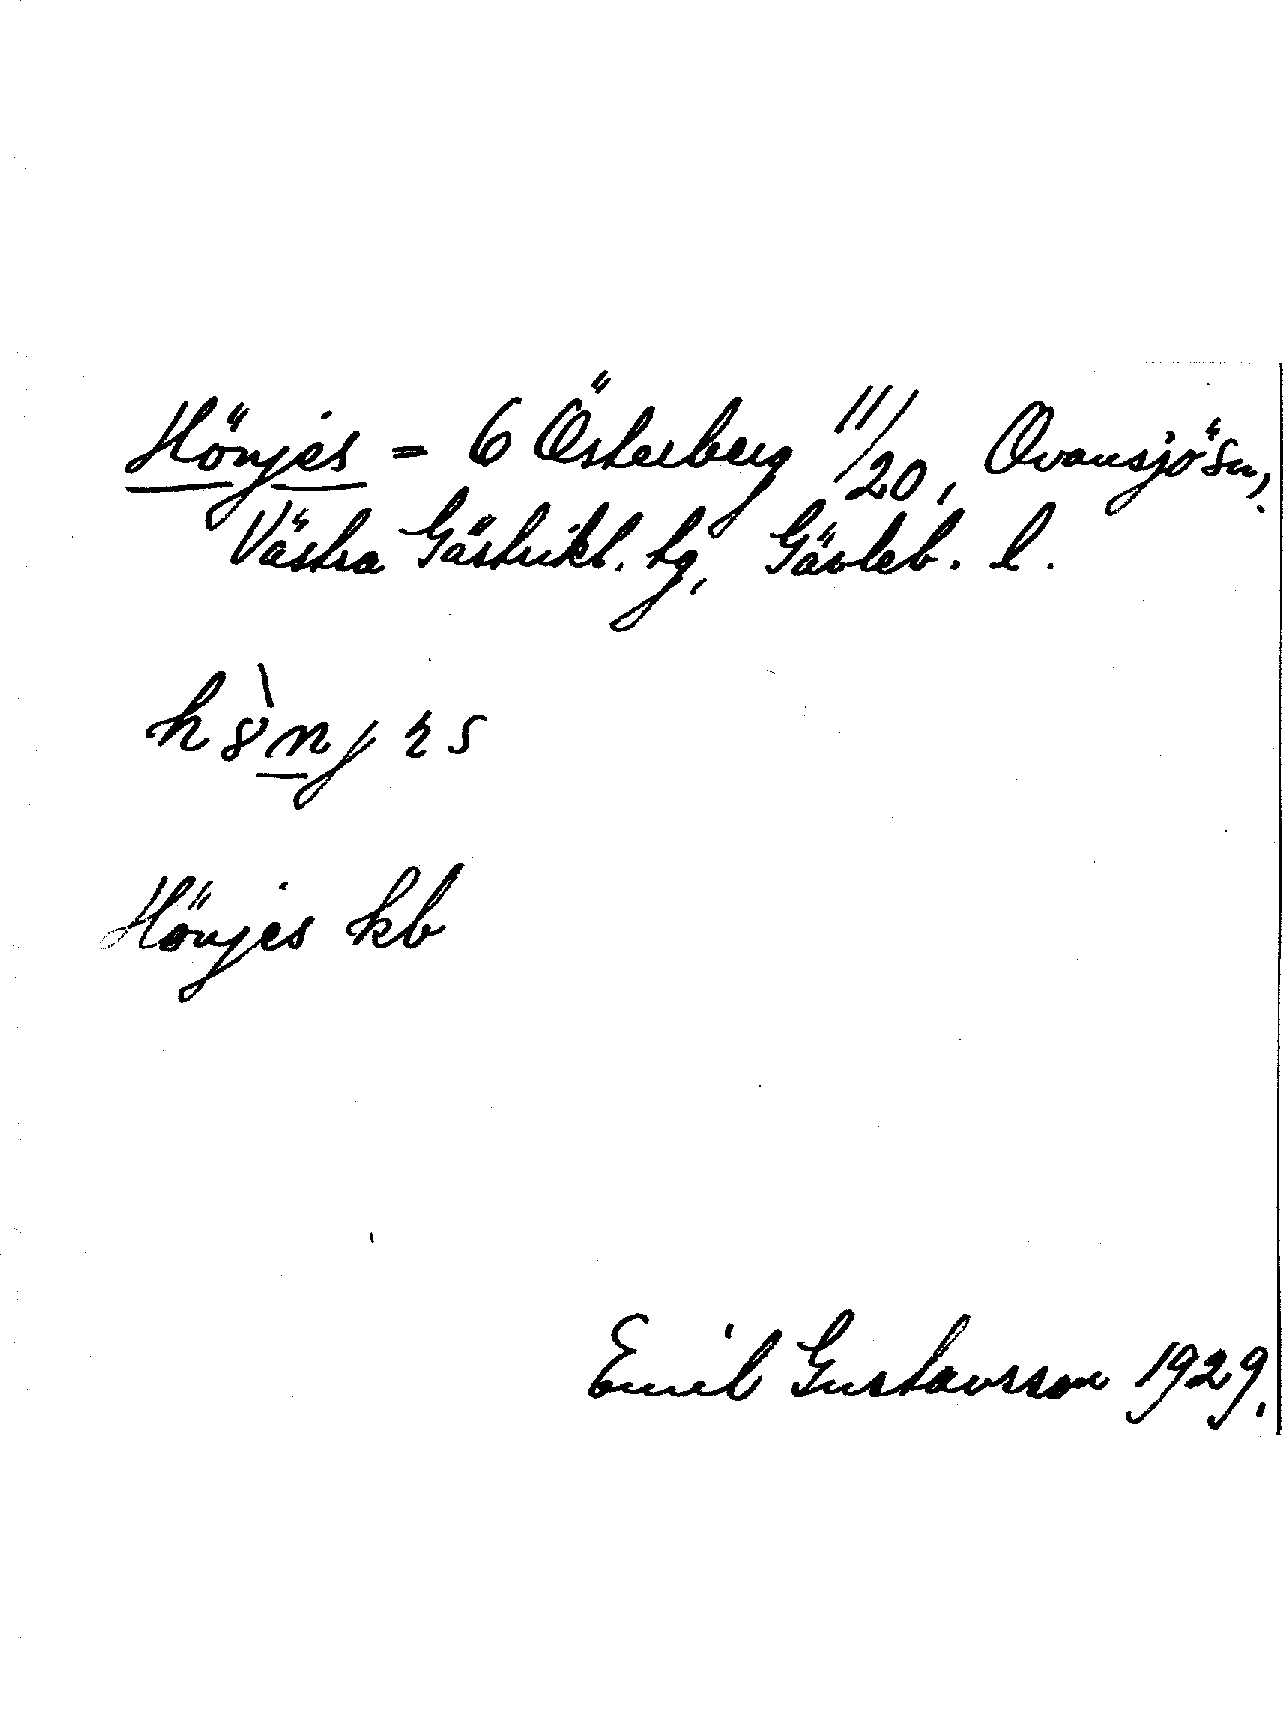 Hönjes = 6 Österberg 11/20, Ovansjö sn,
Västra Gästrikl. tg, Gävleb. l.
Hönjes kb
Emil Gustavsson 1929.